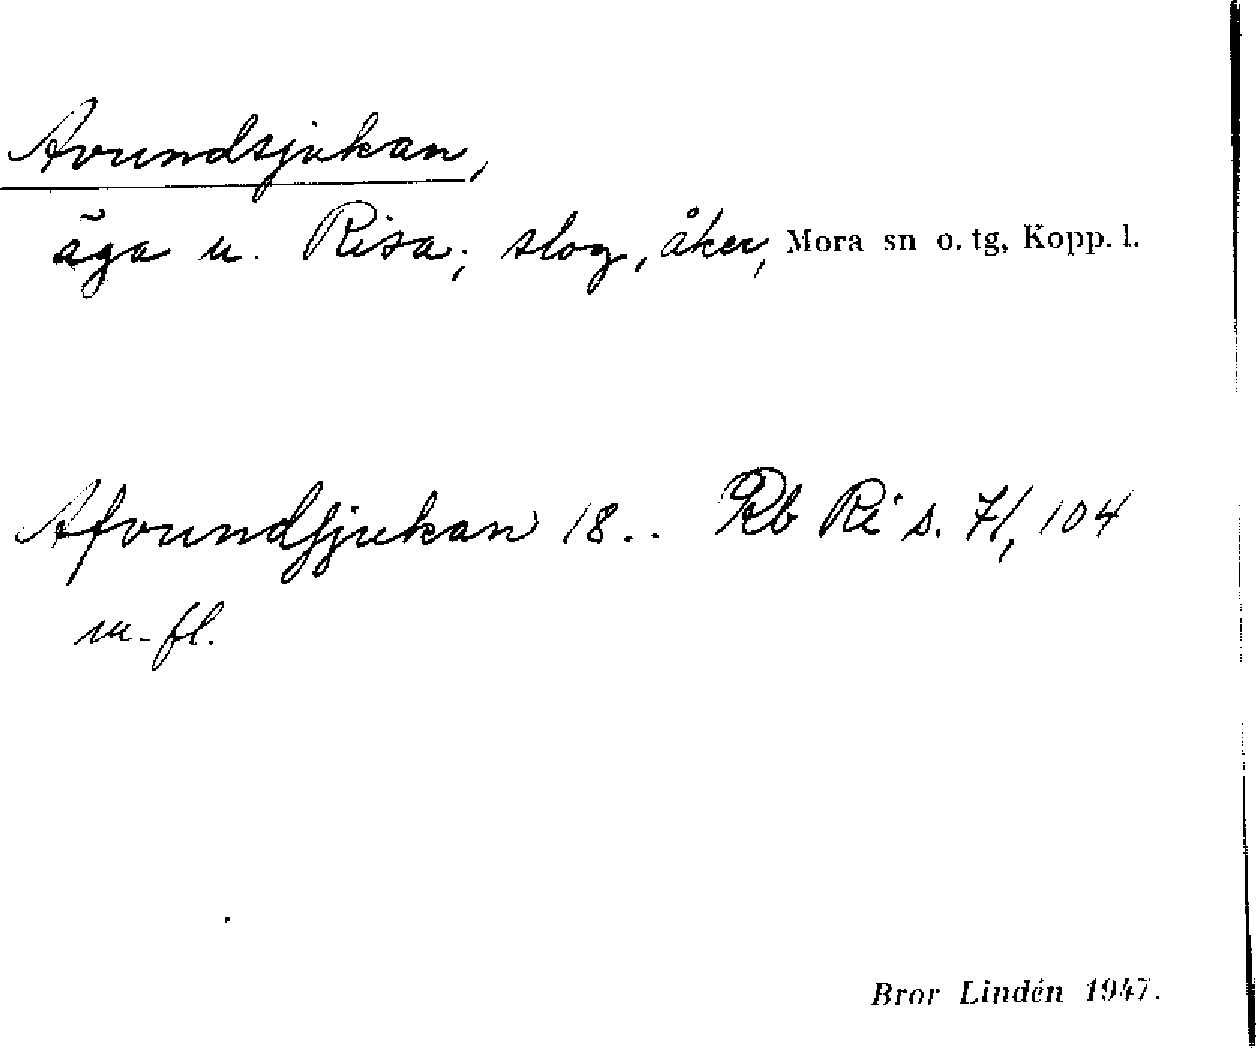 Avundsjukan,
äga u. Risa; slog, åker, Mora sn o. tg, Kopp. l.
Afvundsjukan 18.. Rb Ri s. 71, 104
m. fl.
Bror Lindén 1947.